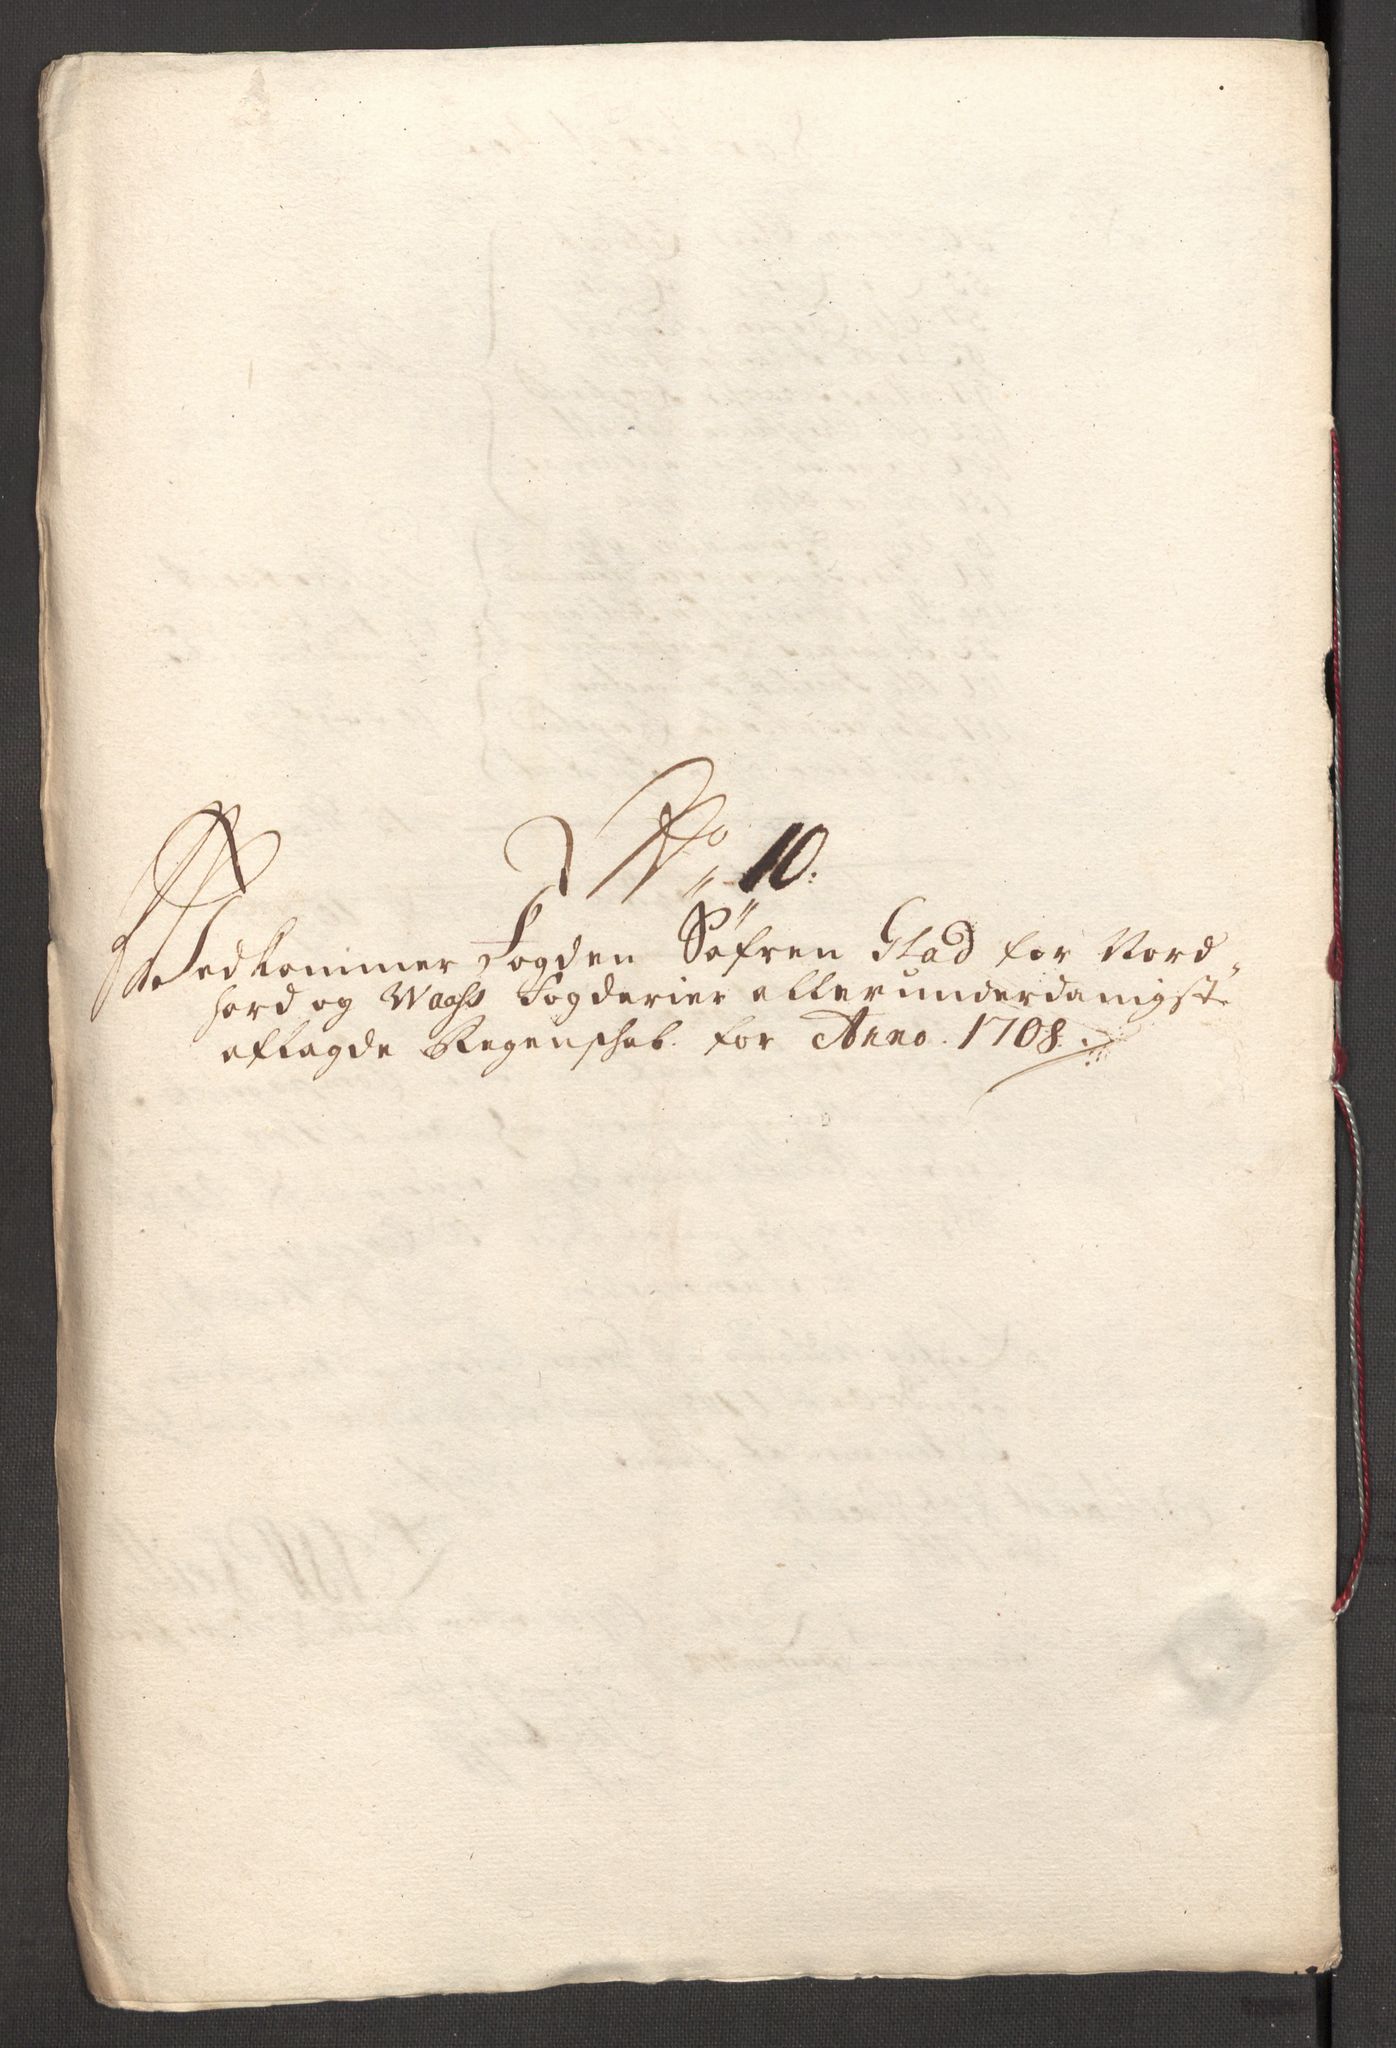 No 10.
Vedkommer Fogden Søfren Glad for Nord,,
hord og Waahs Fogderier allerunderdanigst
aflagde Regenskab. for Anno. 1708.